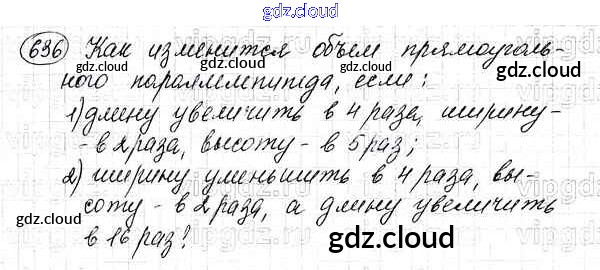 gdz.cloud
636 Как изменится объем прямоуголь-
gdz.cloud gdz.cloud
ного параллелепипеда, если:
1) длину увеличить в 4 раза, ширину -
- в 2 раза, высоту - в 5 раз;
gdz.cloud gdz.cloud
2) ширину уменьшить в 4 раза, вы-
соту - в 2 раза, а длину увеличить
в 16 раз?
gdz.cloud